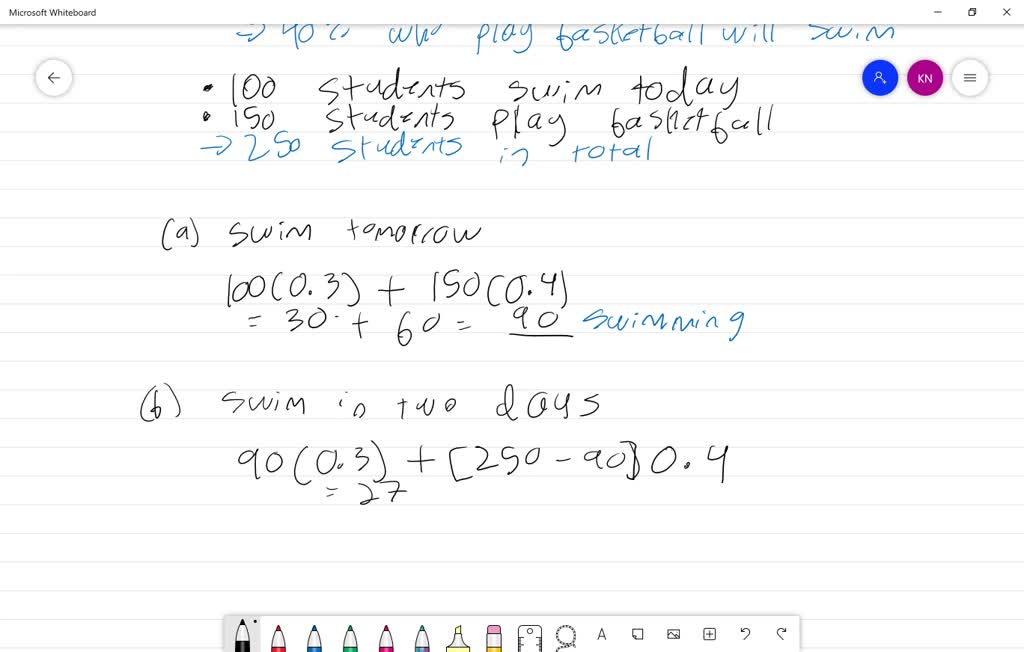 Microsoft Whiteboard
→ 40% who play basketball will swim
KN
• 100 students swim today
• 150 students play basketball
→ 250 students in total
(a) swim tomorrow
100(0.3) + 150(0.4)
= 30 + 60 = 90 swimming
(b) swim in two days
90(0.3) + [250 - 90]0.4
= 27
A